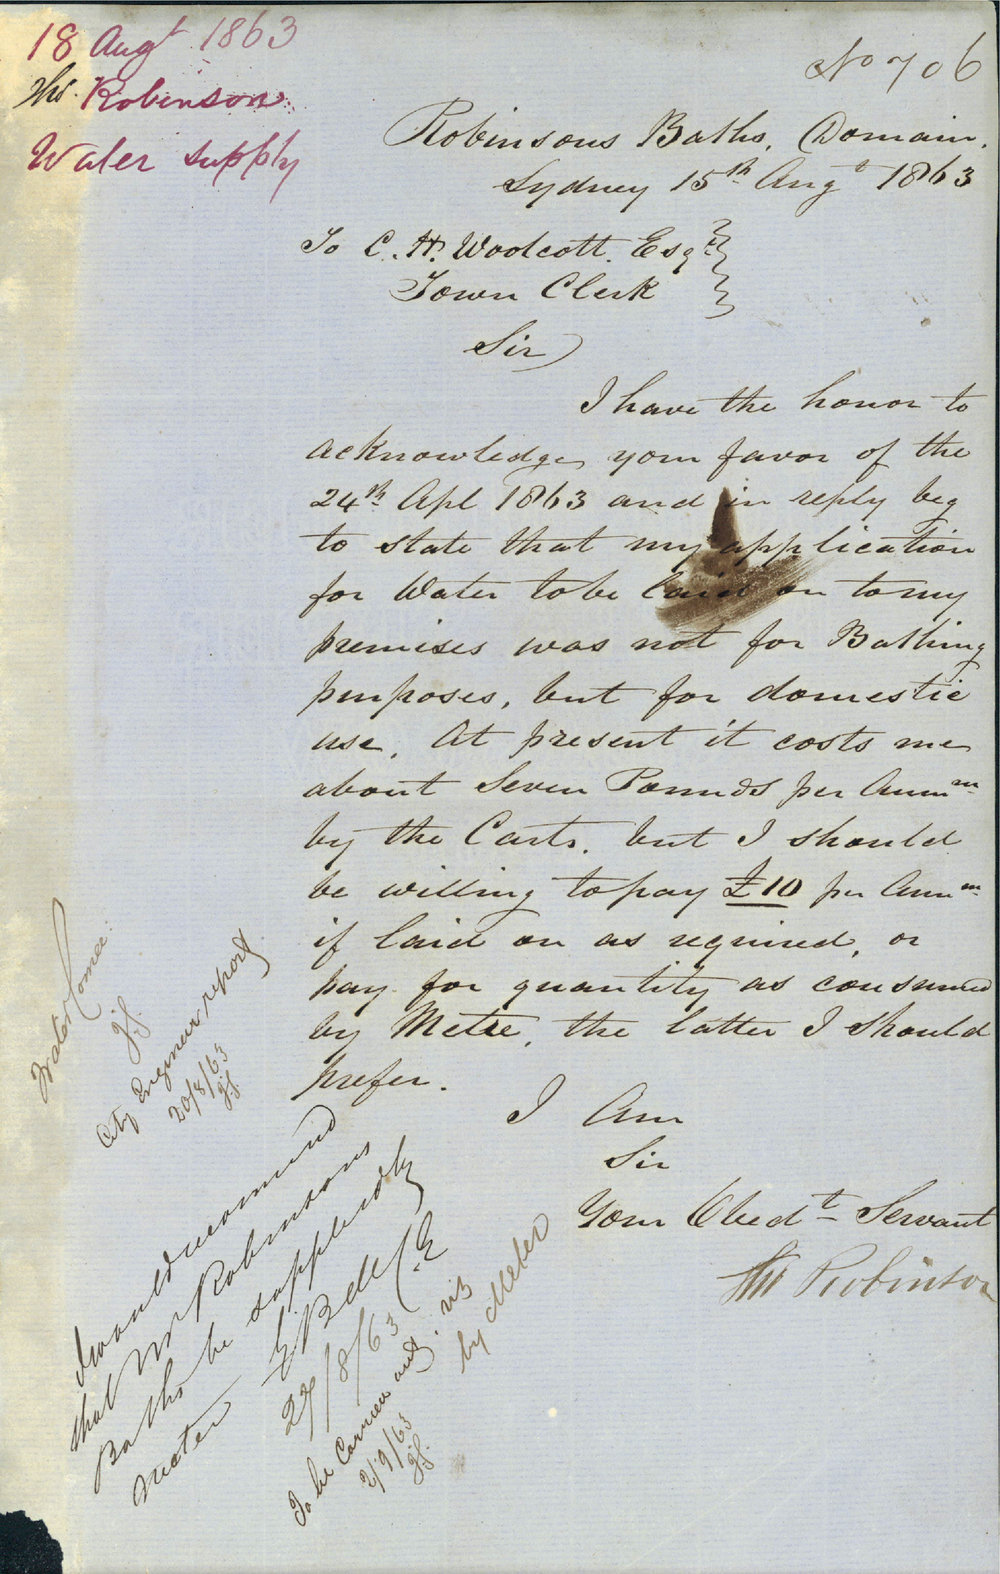 18 Augt 1863
Thos Robinson
Water supply
No 706
Robinsons Baths, Domain,
Sydney 15th Augt 1863
To C. H. Woolcott. Esqre
Town Clerk
Sir
I have the honor to
acknowledge your favor of the
24th Apl 1863 and in reply beg
to state that my application
for Water to be laid on to my
premises was not for Bathing
purposes, but for domestic
use. At present it costs me
about Seven Pounds per Annm
by the Carts. but I should
be willing to pay £10 per Annm
if laid on as required, or
pay for quantity as consumed
by Metre, the latter I should
prefer.
I Am
Sir
Your Obedt Servant
Thos Robinson
Water Comee.
City Engineer report
20/8/63
I would recommend
that Mr Robinsons
Baths be supplied by
meter
27/8/63
To be Carried out. viz
by Meter
2/9/63